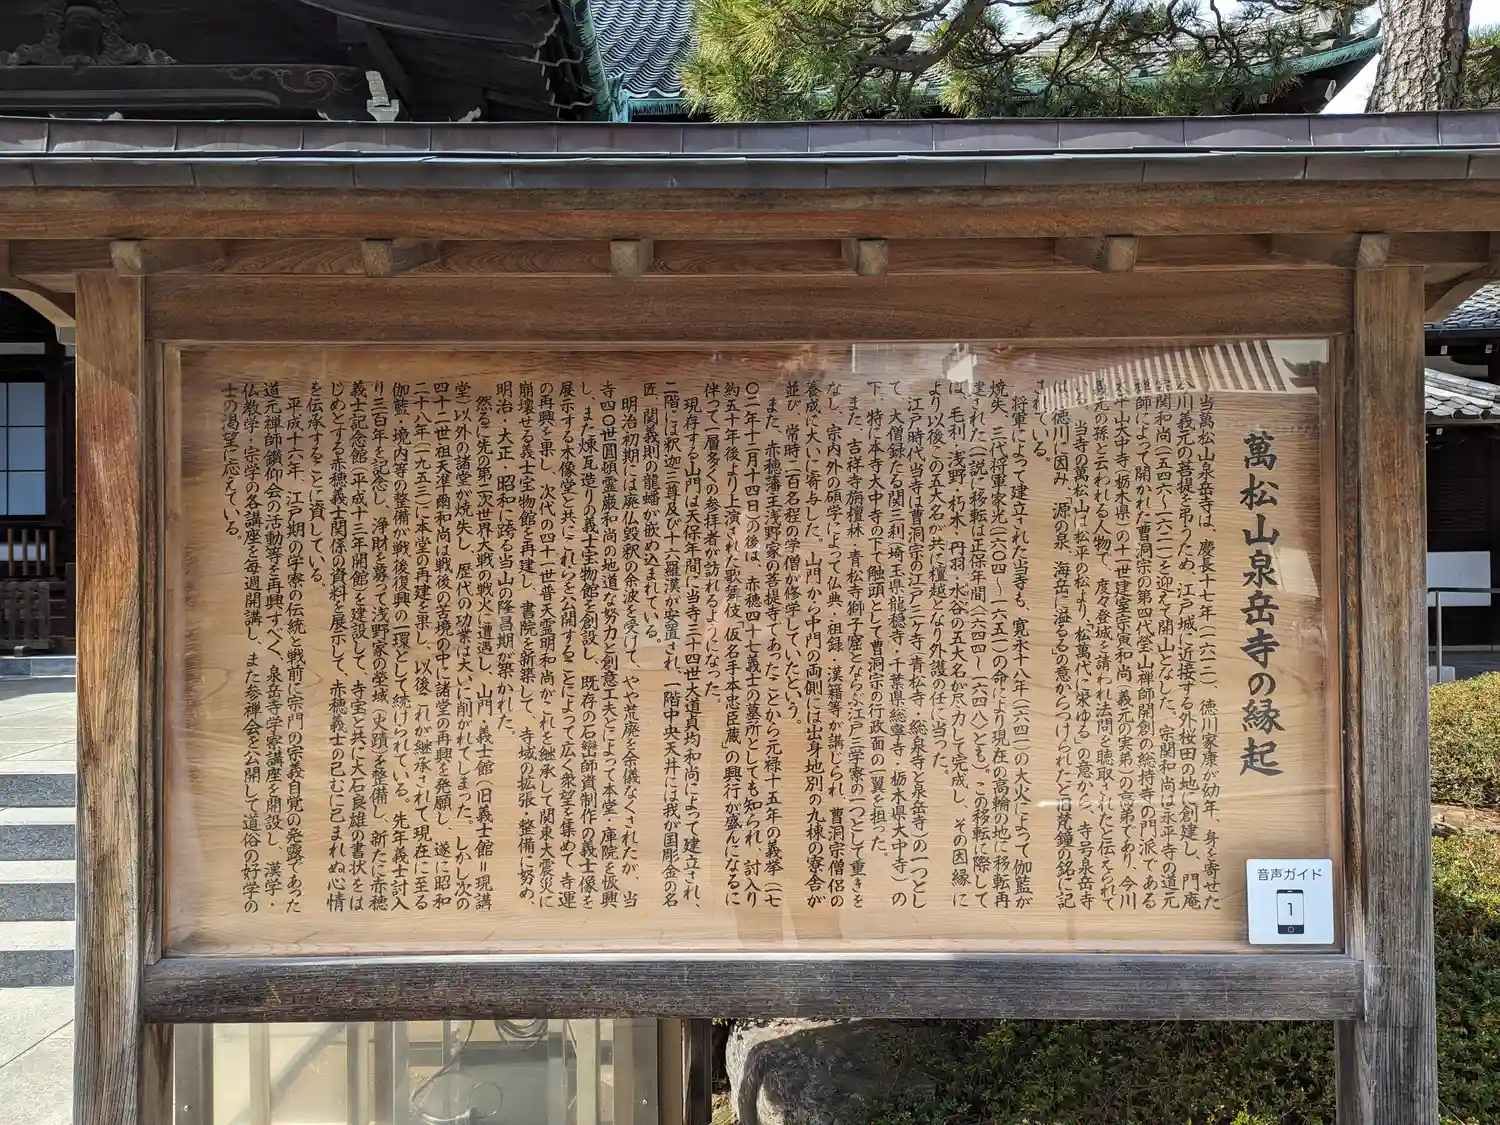 萬松山泉岳寺の縁起
当萬松山泉岳寺は、慶長十七年(一六一二)、徳川家康が幼年、身を寄せた
今川義元の菩提を弔うため、江戸城に近接する外桜田の地に創建し、門庵
宗関和尚(一五四六~一六二一)を迎えて開山となした。宗関和尚は永平寺の道元
禅師によって開かれた曹洞宗の第四代瑩山禅師開創の総持寺の門派である
大中寺(栃木県)の十一世建室宗寅和尚(義元の実弟)の高弟であり、今川
義元の孫と云われる人物で、度々登城を請われ法問を聴取されたと伝えられて
いる。当寺の萬松山は松平の松より「松萬代に栄ゆる」の意から、寺号泉岳寺
は、徳川に因み「源の泉、海岳に溢るる」の意からつけられたと旧梵鐘の銘に記
されている。
将軍家によって建立された当寺も、寛永十八年(一六四一)の大火によって伽藍が
焼失、三代将軍家光(一六〇四~一六五一)の命により現在の高輪の地に移転再
建された(一説に移転は正保年間(一六四四~一六四八)とも)。この移転に際して
は、毛利・浅野・朽木・丹羽・水谷の五大名が尽力して完成し、その因縁に
より以後この五大名が共に檀越となり外護の任に当った。
江戸時代当寺は曹洞宗の江戸三ケ寺(青松寺・総泉寺と泉岳寺)の一つとし
て、大僧録たる関三刹(埼玉県龍穏寺・千葉県総寧寺・栃木県大中寺)の
下、特に本寺大中寺の下で触頭として曹洞宗の行政面の一翼を担った。
また、吉祥寺旃檀林・青松寺獅子窟とならぶ江戸三学寮の一つとして重きを
なし、宗内外の碩学によって仏典・祖録・漢籍等が講じられ、曹洞宗僧侶の
養成に大いに寄与した。山門から中門の両側には出身地別の九棟の寮舎が
並び、常時二百名程の学僧が修学していたという。
また、赤穂藩主浅野家の菩提寺であったことから元禄十五年の義挙(一七
〇二年十二月十四日)の後は、赤穂四十七義士の墓所としても知られ、討入り
約五十年後より上演された歌舞伎「仮名手本忠臣蔵」の興行が盛んになるに
伴って一層多くの参拝者が訪れるようになった。
現存する山門は天保年間に当寺三十四世大道貞均和尚によって建立され、
二階には釈迦三尊及び十六羅漢が安置され、一階中央天井には我が国彫金の名
匠、関義則の龍蟠が嵌め込まれている。
明治初期には廃仏毀釈の余波を受けて、やや荒廃を余儀なくされたが、当
寺四〇世圓頓霊巌和尚の地道な努力と創意工夫とによって本堂・庫院を恢興
し、また煉瓦造りの義士宝物館を創設し、既存の石巒師資制作の義士像を
展示する木像堂と共にこれらを公開することによって広く衆望を集めて寺運
の再興を果し、次代の四十一世普天霊明和尚がこれを継承して関東大震災に
崩壊せる義士宝物館を再建し、書院を新築して、寺域の拡張・整備に努め、
明治・大正・昭和に跨る当山の隆昌期が築かれた。
然るに先の第二次世界大戦の戦火に遭遇し、山門・義士館(旧義士館=現講
堂)以外の諸堂が焼失し、歴代の功業は大いに削がれてしまった。しかし次の
四十二世祖天準爾和尚は戦後の苦境の中に諸堂の再興を発願し、遂に昭和
二十八年(一九五三)に本堂の再建を果し、以後これが継承されて現在に至る
伽藍・境内等の整備が戦後復興の一環として続けられている。先年義士討入
り三百年を記念し、浄財を募って浅野家の塋域(火蹟)を整備し、新たに赤穂
義士記念館(平成十三年開館)を建設して、寺宝と共に大石良雄の書状をは
じめとする赤穂義士関係の資料を展示して、赤穂義士の已むに已まれぬ心情
を伝承することに資している。
平成十六年、江戸期の学寮の伝統と戦前に宗門の宗義自覚の発露であった
道元禅師鑽仰会の活動等を再興すべく、泉岳寺学寮講座を開設し、漢学・
仏教学・宗学の各講座を毎週開講し、また参禅会を公開して道俗の好学の
士の渇望に応えている。
音声ガイド
1